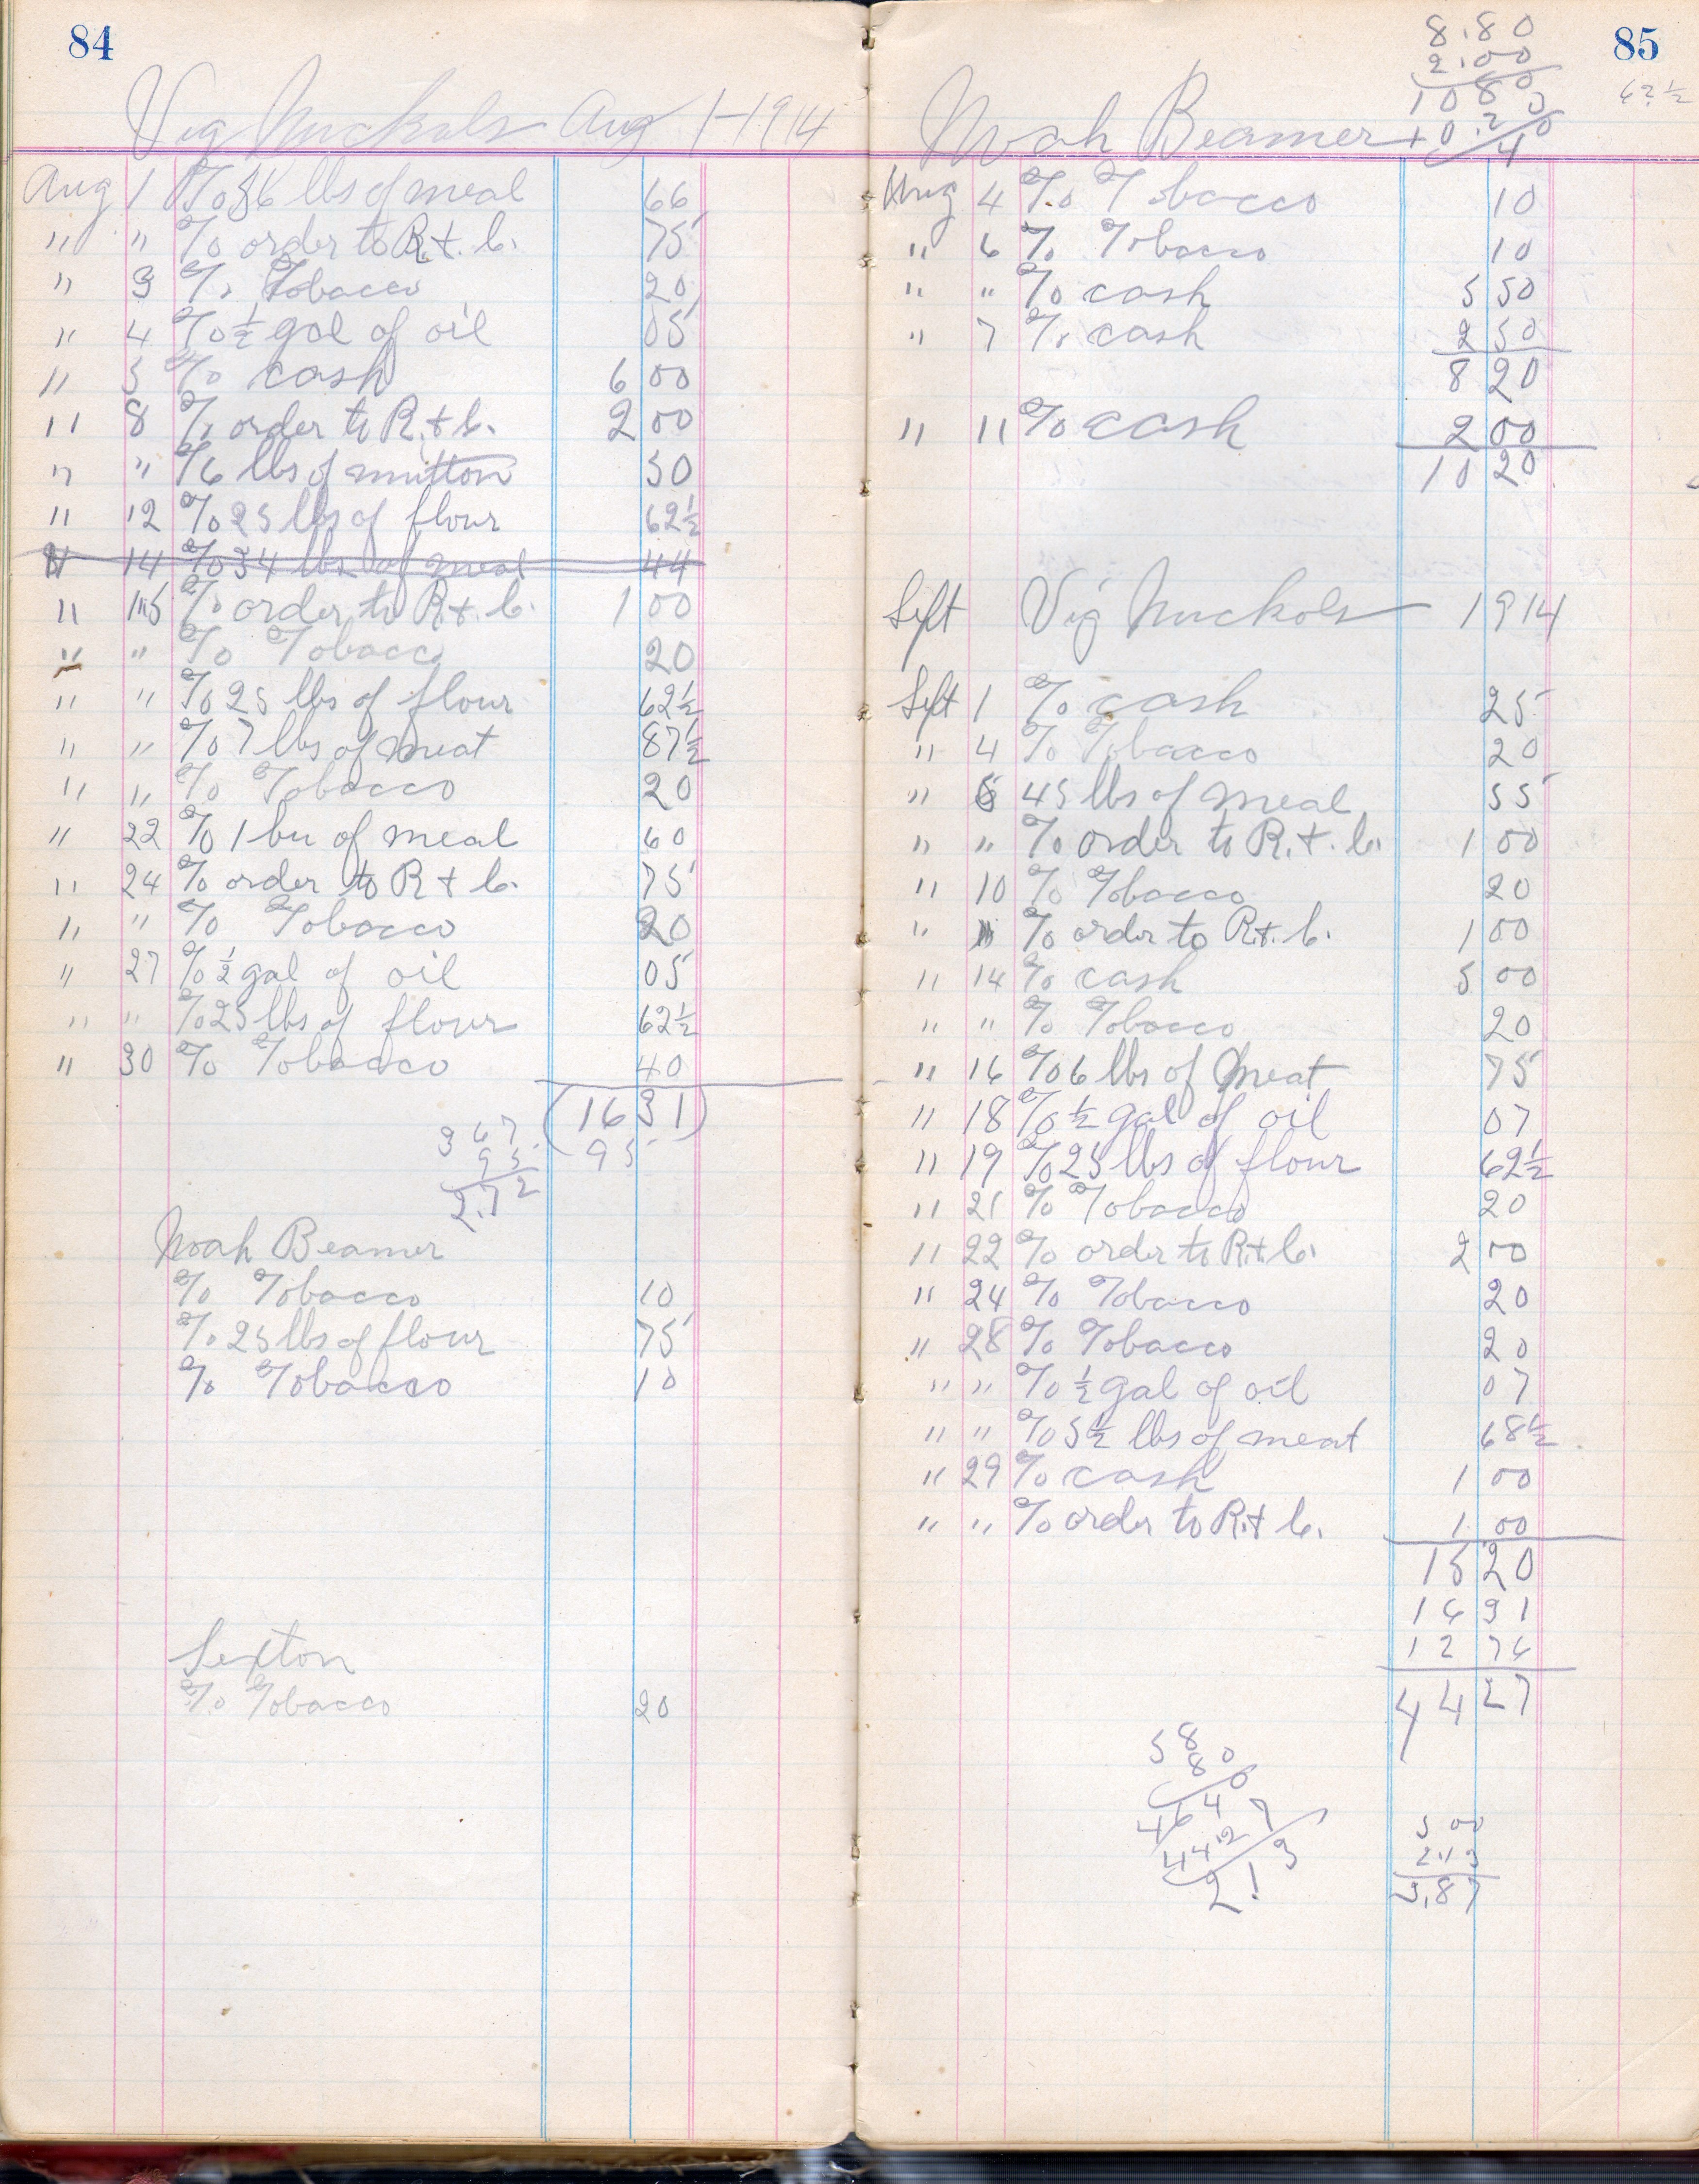 84
Vig Nuckols Aug 1-1914
Aug 1 % 56 lbs of meal 66
" " % order to R. + C. 75
" 3 % Tobacco 20
" 4 % ½ gal of oil 05
" 5 % cash 6 00
" 8 % order to R. + C. 2 00
" " % 6 lbs of mutton 50
" 12 % 25 lbs of flour 62½
" 14 % 34 lbs of meal 44
" 15 % order to R + C. 1 00
" " % Tobacco 20
" " % 25 lbs of flour 62½
" " % 7 lbs of meat 87½
" " % Tobacco 20
" 22 % 1 bu of meal 60
" 24 % order to R + C. 75
" " % Tobacco 20
" 27 % ½ gal of oil 05
" " % 25 lbs of flour 62½
" 30 % Tobacco 40
(16 31)
95
3 67
95
2.72
Noah Beamer
% Tobacco 10
% 25 lbs of flour 75
% Tobacco 10
Sexton
% Tobacco 20
85
8.80
2.00
10 80
62½
Noah Beamer
Aug 4 % Tobacco 10
" 6 % Tobacco 10
" " % cash 5 50
" 7 % cash 2 50
8 20
" 11 % cash 2 00
10 20
Sept Vig Nuckols 1914
Sept 1 % cash 25
" 4 % Tobacco 20
" 6 45 lbs of meal 55
" " % order to R. + C. 1 00
" 10 % Tobacco 20
" % order to R. + C. 1 00
" 14 % cash 5 00
" " % Tobacco 20
" 16 % 6 lbs of meat 75
" 18 % ½ gal of oil 07
" 19 % 25 lbs of flour 62½
" 21 % Tobacco 20
" 22 % order to R. + C. 2 00
" 24 % Tobacco 20
" 28 % Tobacco 20
" " % ½ gal of oil 07
" " % 5½ lbs of meat 68½
" 29 % cash 1 00
" " % order to R. + C. 1 00
15 20
16 31
12 76
44 27
58
80
46 4
44 27
2.13
5 00
2.13
3.87